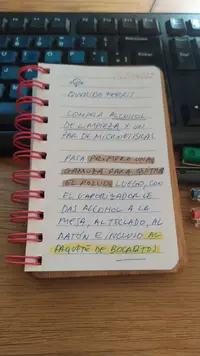 QUERIDO
COMPRA ALCOHOL
DE LIMPIEZA Y UN
PAR DE MICROFIBRAS.
PASA PRIMERO UNA
GAMUZA PARA QUITAR
EL POLVO. LUEGO, CON
EL VAPORIZADOR LE
DAS ALCOHOL A LA
MESA, AL TECLADO, AL
RATÓN E INCLUSO AL
PAQUETE DE BOCADITOS